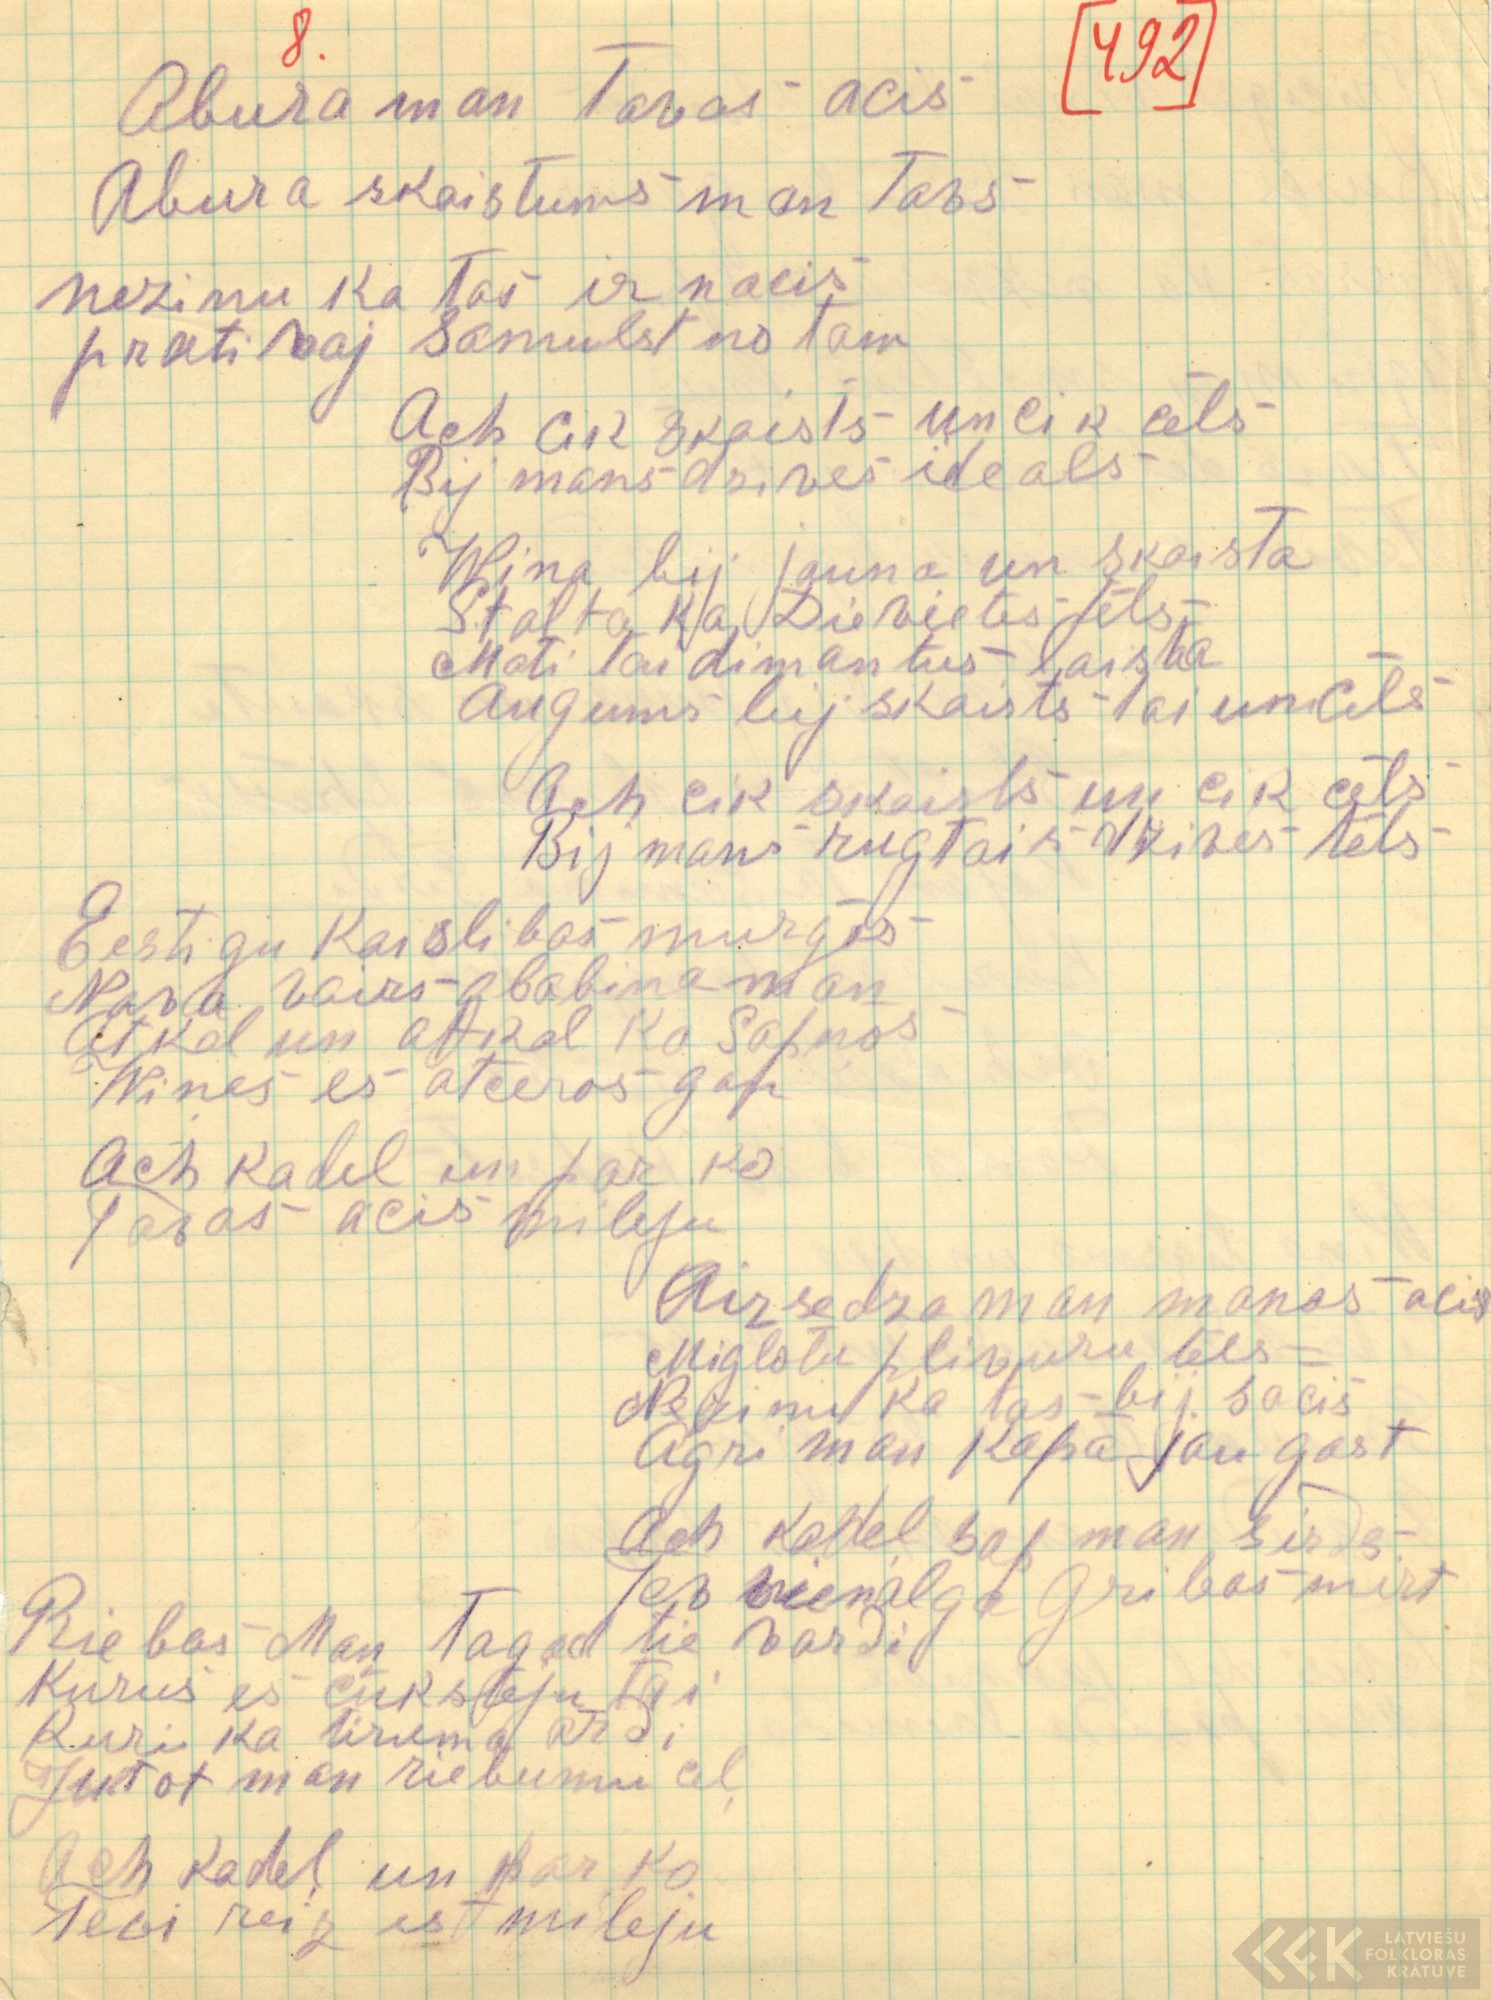 8.
[492]
Abura man Tavas acis
Abura skaistums man Tavs
nezinu ka Tas ir nacis
prati vaj Samulst no tam
Ach cik skaists un cik cēls
Bij mans dzives ideals
Wina bij jauna un skaista
Stalta ka Dievietes tēls
Mati tai dimantus laista
Augums bij skaists tai un cēls
Ach cik skaists un cik cēls
Bij mans rugtais dzives tēls
Eestigu Kaislibas murgos
Nava vairs ababina man
Atkal un atkal Ka Sapnos
Wines es atceros gan
Ach kadel un par ko
Tavas acis mileju
Aizsedza man manas acis
Miglotu plivuru tēls
Nezinu Ka tas bij sacis
Agri man Kapā jau gast
Ach kadel sap man sirds
Tev vienalga Gribas mirt
Riebas Man Tagad tie vardi
Kurus es čukstēju Tai
Kuri ka tiruma ardi
Jutot man riebumu cel,
Ach kadeļ un par ko
Tevi reiz es mileju
LATVIEŠU
FOLKLORAS
KRĀTUVE